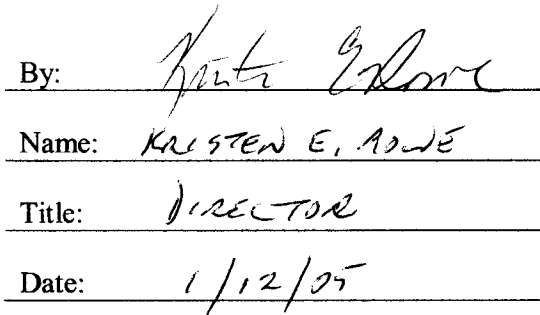 By: Kristen E Rowe
Name: KRISTEN E. ROWE
Title: DIRECTOR
Date: 1/12/05